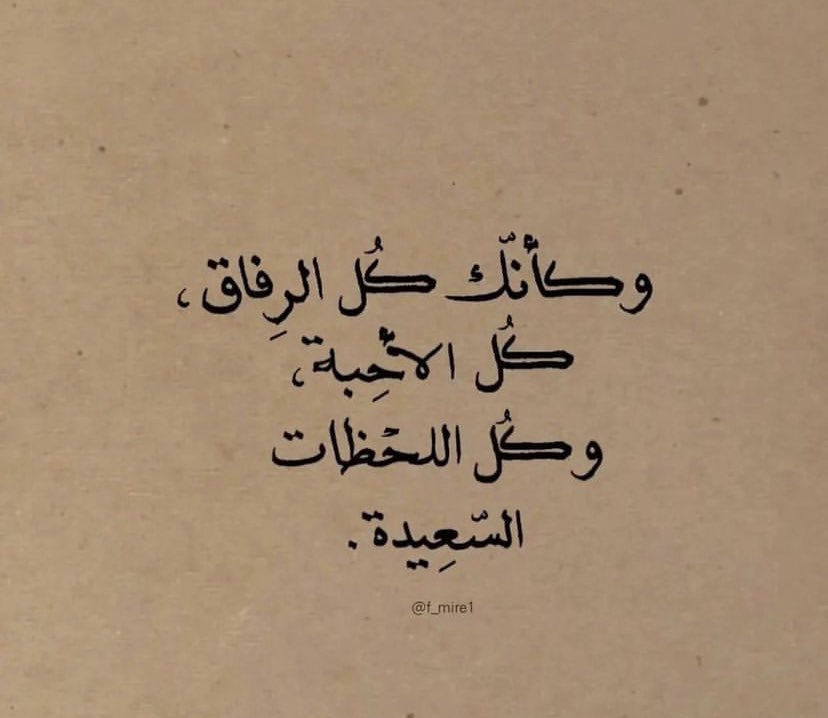 وكأنّك كُل الرِفاق،
كُل الأحِبة،
وكُل اللحْظات
السّعِيدة.
@f_mire1